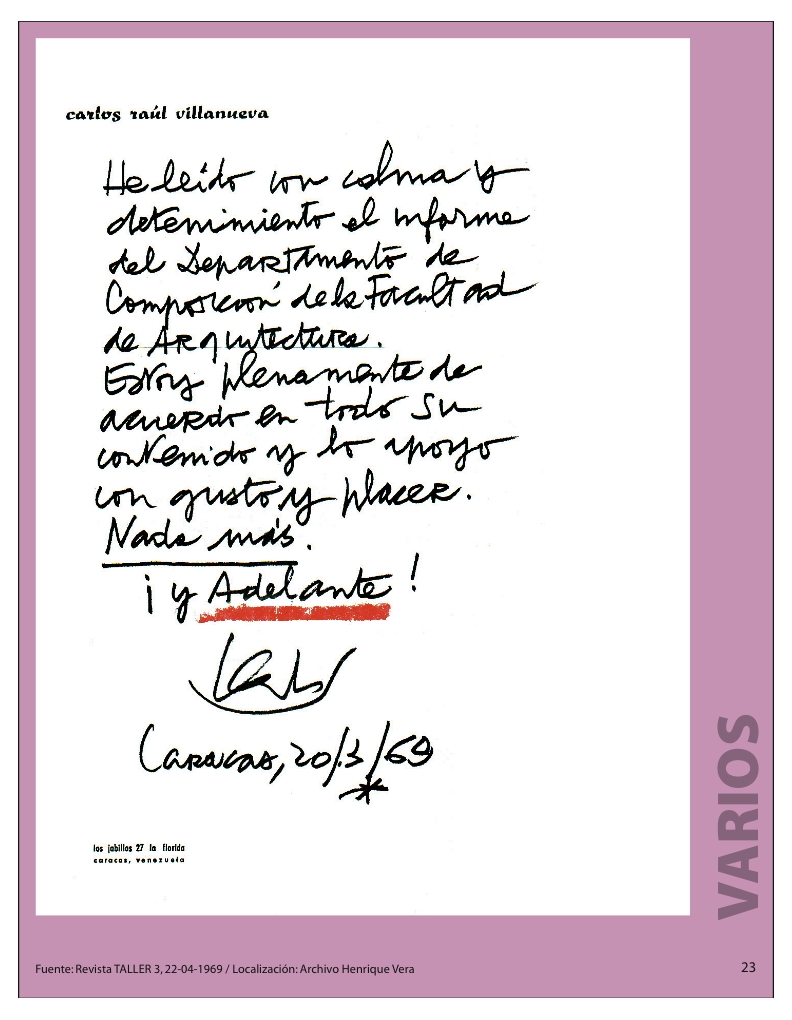 carlos raúl villanueva
He leído con calma y
detenimiento el informe
del Departamento de
Composición de la Facultad
de Arquitectura.
Estoy plenamente de
acuerdo en todo su
contenido y lo apoyo
con gusto y placer.
Nada más.
¡y Adelante!
Caracas, 20/3/69
los jabillos 27 la florida
caracas, venezuela
VARIOS
Fuente: Revista TALLER 3, 22-04-1969 / Localización: Archivo Henrique Vera
23